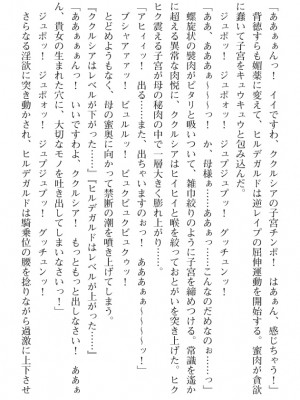 「あああぁぁーんっ！　イイですわ、ククルシアの子宮チンポ！　はあぁん、感じちゃう！」
背徳すらも媚薬に変えて、ヒルデガルドは逆レイプの屈伸運動を開始する。蜜肉が貪欲
に蠢いて子宮をキュウキュウと包み込んだ。
ジュポッ！　ジュポォッ！　ジュプジュプッ！　グッチュンッ！
「ああ、あああぁぁ～～～ッ！　か、母様ぁ……っこんなのだめなのぉ……っ」
螺旋状の襞肉がピタリと吸いついて雑巾絞りのように子宮を締めつける。常識を遙か
に超える異常な肉悦に、ククルシアはヒイヒイと喉を絞っておとがいを突き上げた。ヒク
ヒク震える子宮が母の秘肉の中で一層大きく膨れ上がり……。
「アヒィィッ！　出る……また、出ちゃいますのぉっ！　あああぁぁ～～～ッ！」
プシャアアァッ！　ビュルルッ！　ビクビュクビュクゥッ！
とどめようもなく、母の蜜奥に向かって禁断の潮を噴き上げてしまう。
『ククルシアはレベルが下がった……』『ヒルデガルドはレベルが上がった……』
「あああぁぁんっ！　いいですわよ、ククルシア！　もっともっと出しなさい！　ああぁ
っ、貴女の生まれた穴に、大切なモノを吐き出してしまいなさいっ！」
ジュポッ！　ジュポォッ！　ジュプジュプッ！　グッチュンッ！
さらなる淫欲に突き動かされ、ヒルデガルドは騎乗位の腰を捻りながら過激に上下させ